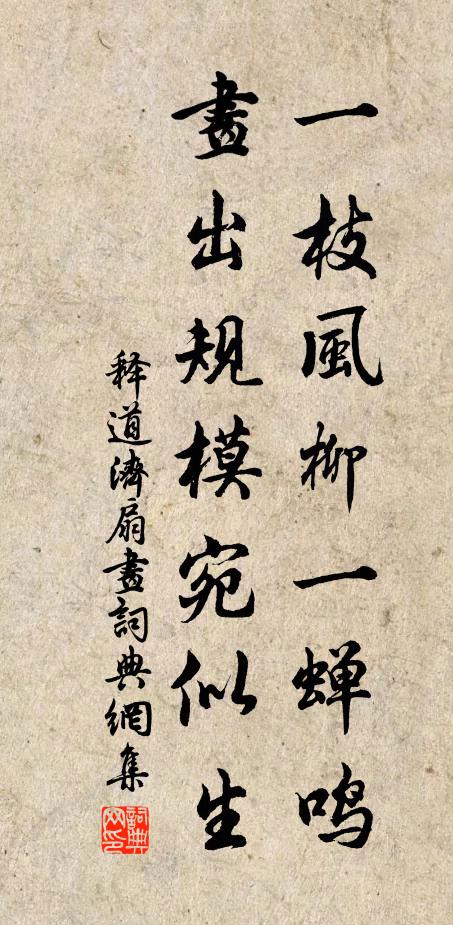 一枝風柳一蝉鸣
畫出規模宛似生
释道濟扇畫詞典網集
詞典網印